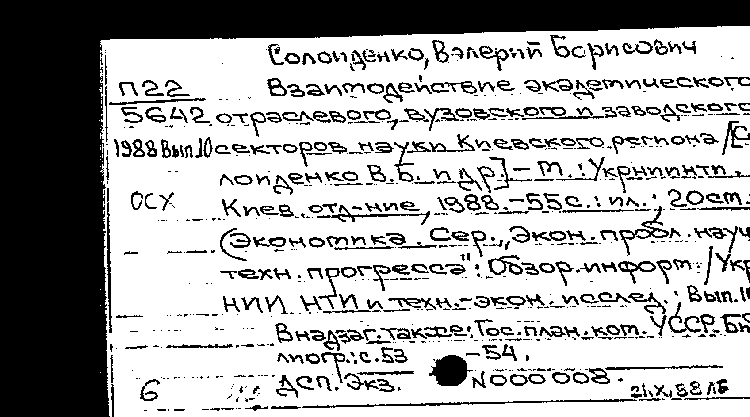 Солоиденко, Валерий Борисович
П22 Взаимодействие академического
5642 отраслевого, вузовского и заводского
1988 Вып.10 секторов науки Киевского региона / [С
лоиденко В.Б. и др.] – М. : Укрниинти.
ОСХ Киев. отд-ние, 1988. – 55 с. : ил. ; 20 см.
(Экономика. Сер. „Экон. пробл. науч
техн. прогресса" : Обзор. информ. / Укр
НИИ НТИ и техн.-экон. исслед. ; Вып. 10
В надзаг. также: Гос. план. ком. УССР. Би
лиогр.: с. 53 – 54.
6 ДСП. Экз. N000008.
21.X.88